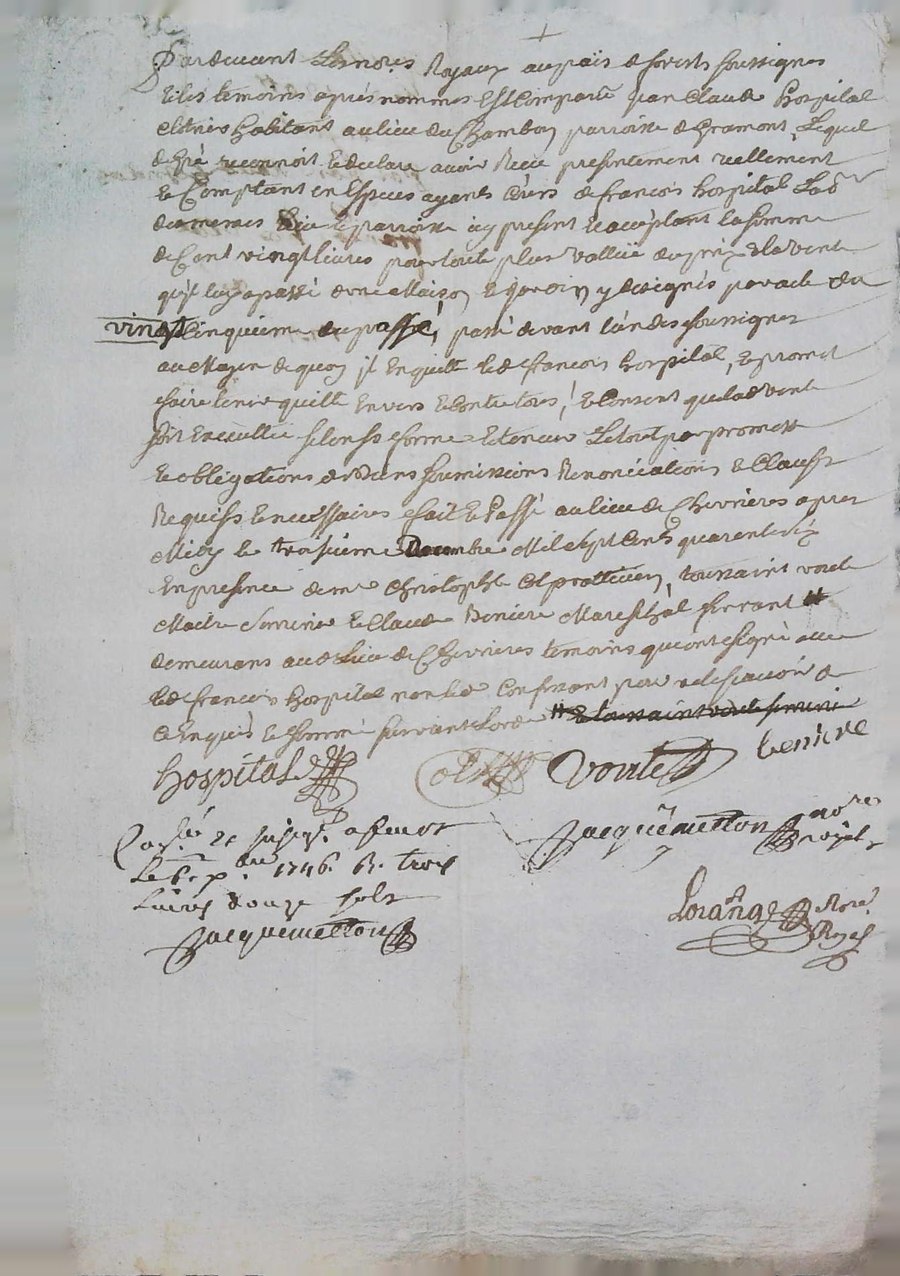 Pardevant les no.res Royaux au païs de forests soussignes
et les temoins apres nommes Est Comparu jean Claude hospital
habitant au lieu du Chambon parroisse de Gramont, Lequel
de gré reconnoit et declare avoir Receu presentement reellement
et Comptant en Especes ayants Cours de françois hospital Lab.r
parroisse icy present et acceptant la somme
de Cent vingt livres pour toute plus vallüe du prix de la vente
qu'il luy a passé d'une Maison et jardin y designés par acte du
vingt Cinquieme du passé, passé devant l'un des soussignes
au Moyen de quoy il En quitte led françois hospital, et promet
faire tenir quitte Envers et Contre tous, et Consent que lad vente
soit Executtée selon sa forme et teneur Le tout par promesse
et obligations de soumissions Renonciations et Clauses
Requises et necessaires fait et Passé au lieu de Chevrieres apres
Midy le troisieme Decembre Mil sept Cents quarente six
En presence de me Christophle toussaint voute
et Claude Beniere Mareschal ferrant #
demeurans aud lieu de Chevrieres temoins qui ont signé avec
led françois hospital non led Confessant pour ne le sçavoir de
ce Enquis et sommé suivant l'ord.e # et toussaint voute
hospital
voute
beniere
Jacquemetton no.re royal
1746.
Livres douze sols
Jacquemetton
Lorange No.re Royal